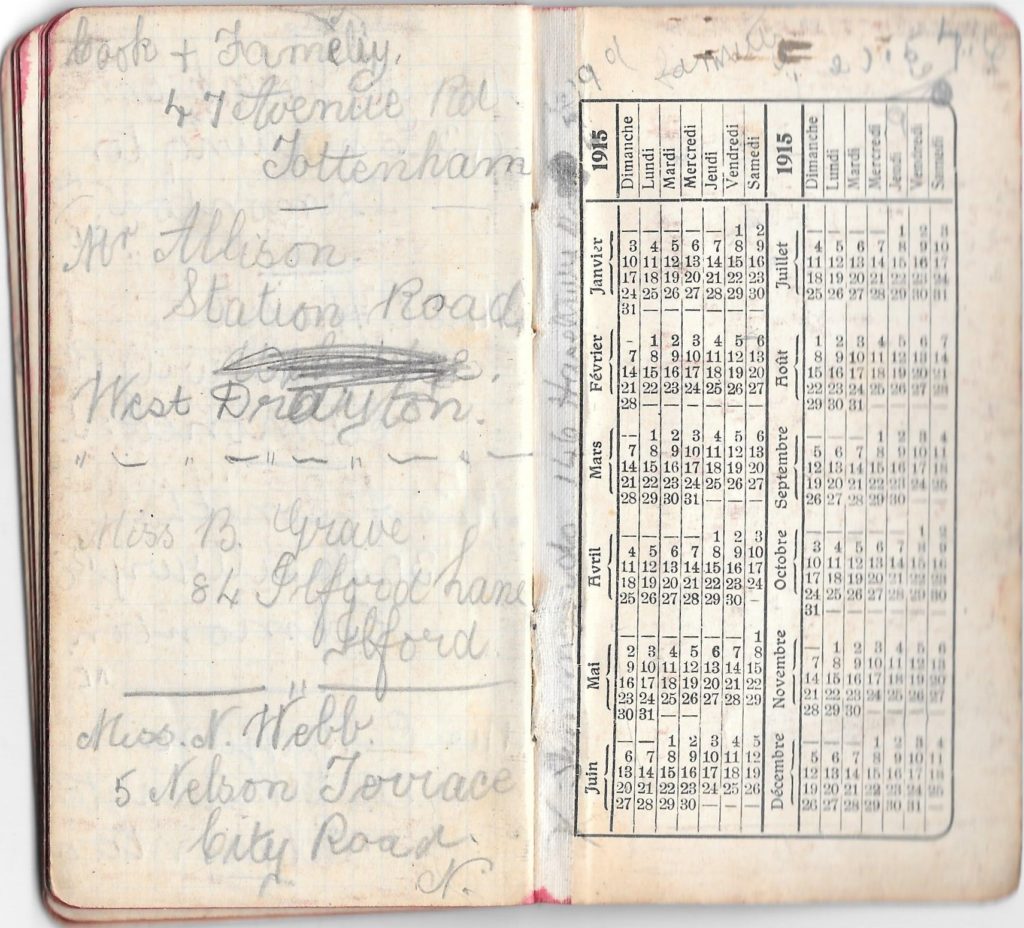 Cook + Fameliy,
47 Avenue Rd
Tottenham
Mr Allison.
Station Road,
West Drayton.
Miss B. Grave.
84 Ilford Lane
Ilford
Miss. N. Webb.
5 Nelson Terrace
City Road.
N.
1915
Dimanche Lundi Mardi Mercredi Jeudi Vendredi Samedi
Janvier
1 2
3 4 5 6 7 8 9
10 11 12 13 14 15 16
17 18 19 20 21 22 23
24 25 26 27 28 29 30
31
Février
1 2 3 4 5 6
7 8 9 10 11 12 13
14 15 16 17 18 19 20
21 22 23 24 25 26 27
28
Mars
1 2 3 4 5 6
7 8 9 10 11 12 13
14 15 16 17 18 19 20
21 22 23 24 25 26 27
28 29 30 31
Avril
1 2 3
4 5 6 7 8 9 10
11 12 13 14 15 16 17
18 19 20 21 22 23 24
25 26 27 28 29 30
Mai
1
2 3 4 5 6 7 8
9 10 11 12 13 14 15
16 17 18 19 20 21 22
23 24 25 26 27 28 29
30 31
Juin
1 2 3 4 5
6 7 8 9 10 11 12
13 14 15 16 17 18 19
20 21 22 23 24 25 26
27 28 29 30
1915
Dimanche Lundi Mardi Mercredi Jeudi Vendredi Samedi
Juillet
1 2 3
4 5 6 7 8 9 10
11 12 13 14 15 16 17
18 19 20 21 22 23 24
25 26 27 28 29 30 31
Août
1 2 3 4 5 6 7
8 9 10 11 12 13 14
15 16 17 18 19 20 21
22 23 24 25 26 27 28
29 30 31
Septembre
1 2 3 4
5 6 7 8 9 10 11
12 13 14 15 16 17 18
19 20 21 22 23 24 25
26 27 28 29 30
Octobre
1 2
3 4 5 6 7 8 9
10 11 12 13 14 15 16
17 18 19 20 21 22 23
24 25 26 27 28 29 30
31
Novembre
1 2 3 4 5 6
7 8 9 10 11 12 13
14 15 16 17 18 19 20
21 22 23 24 25 26 27
28 29 30
Décembre
1 2 3 4
5 6 7 8 9 10 11
12 13 14 15 16 17 18
19 20 21 22 23 24 25
26 27 28 29 30 31